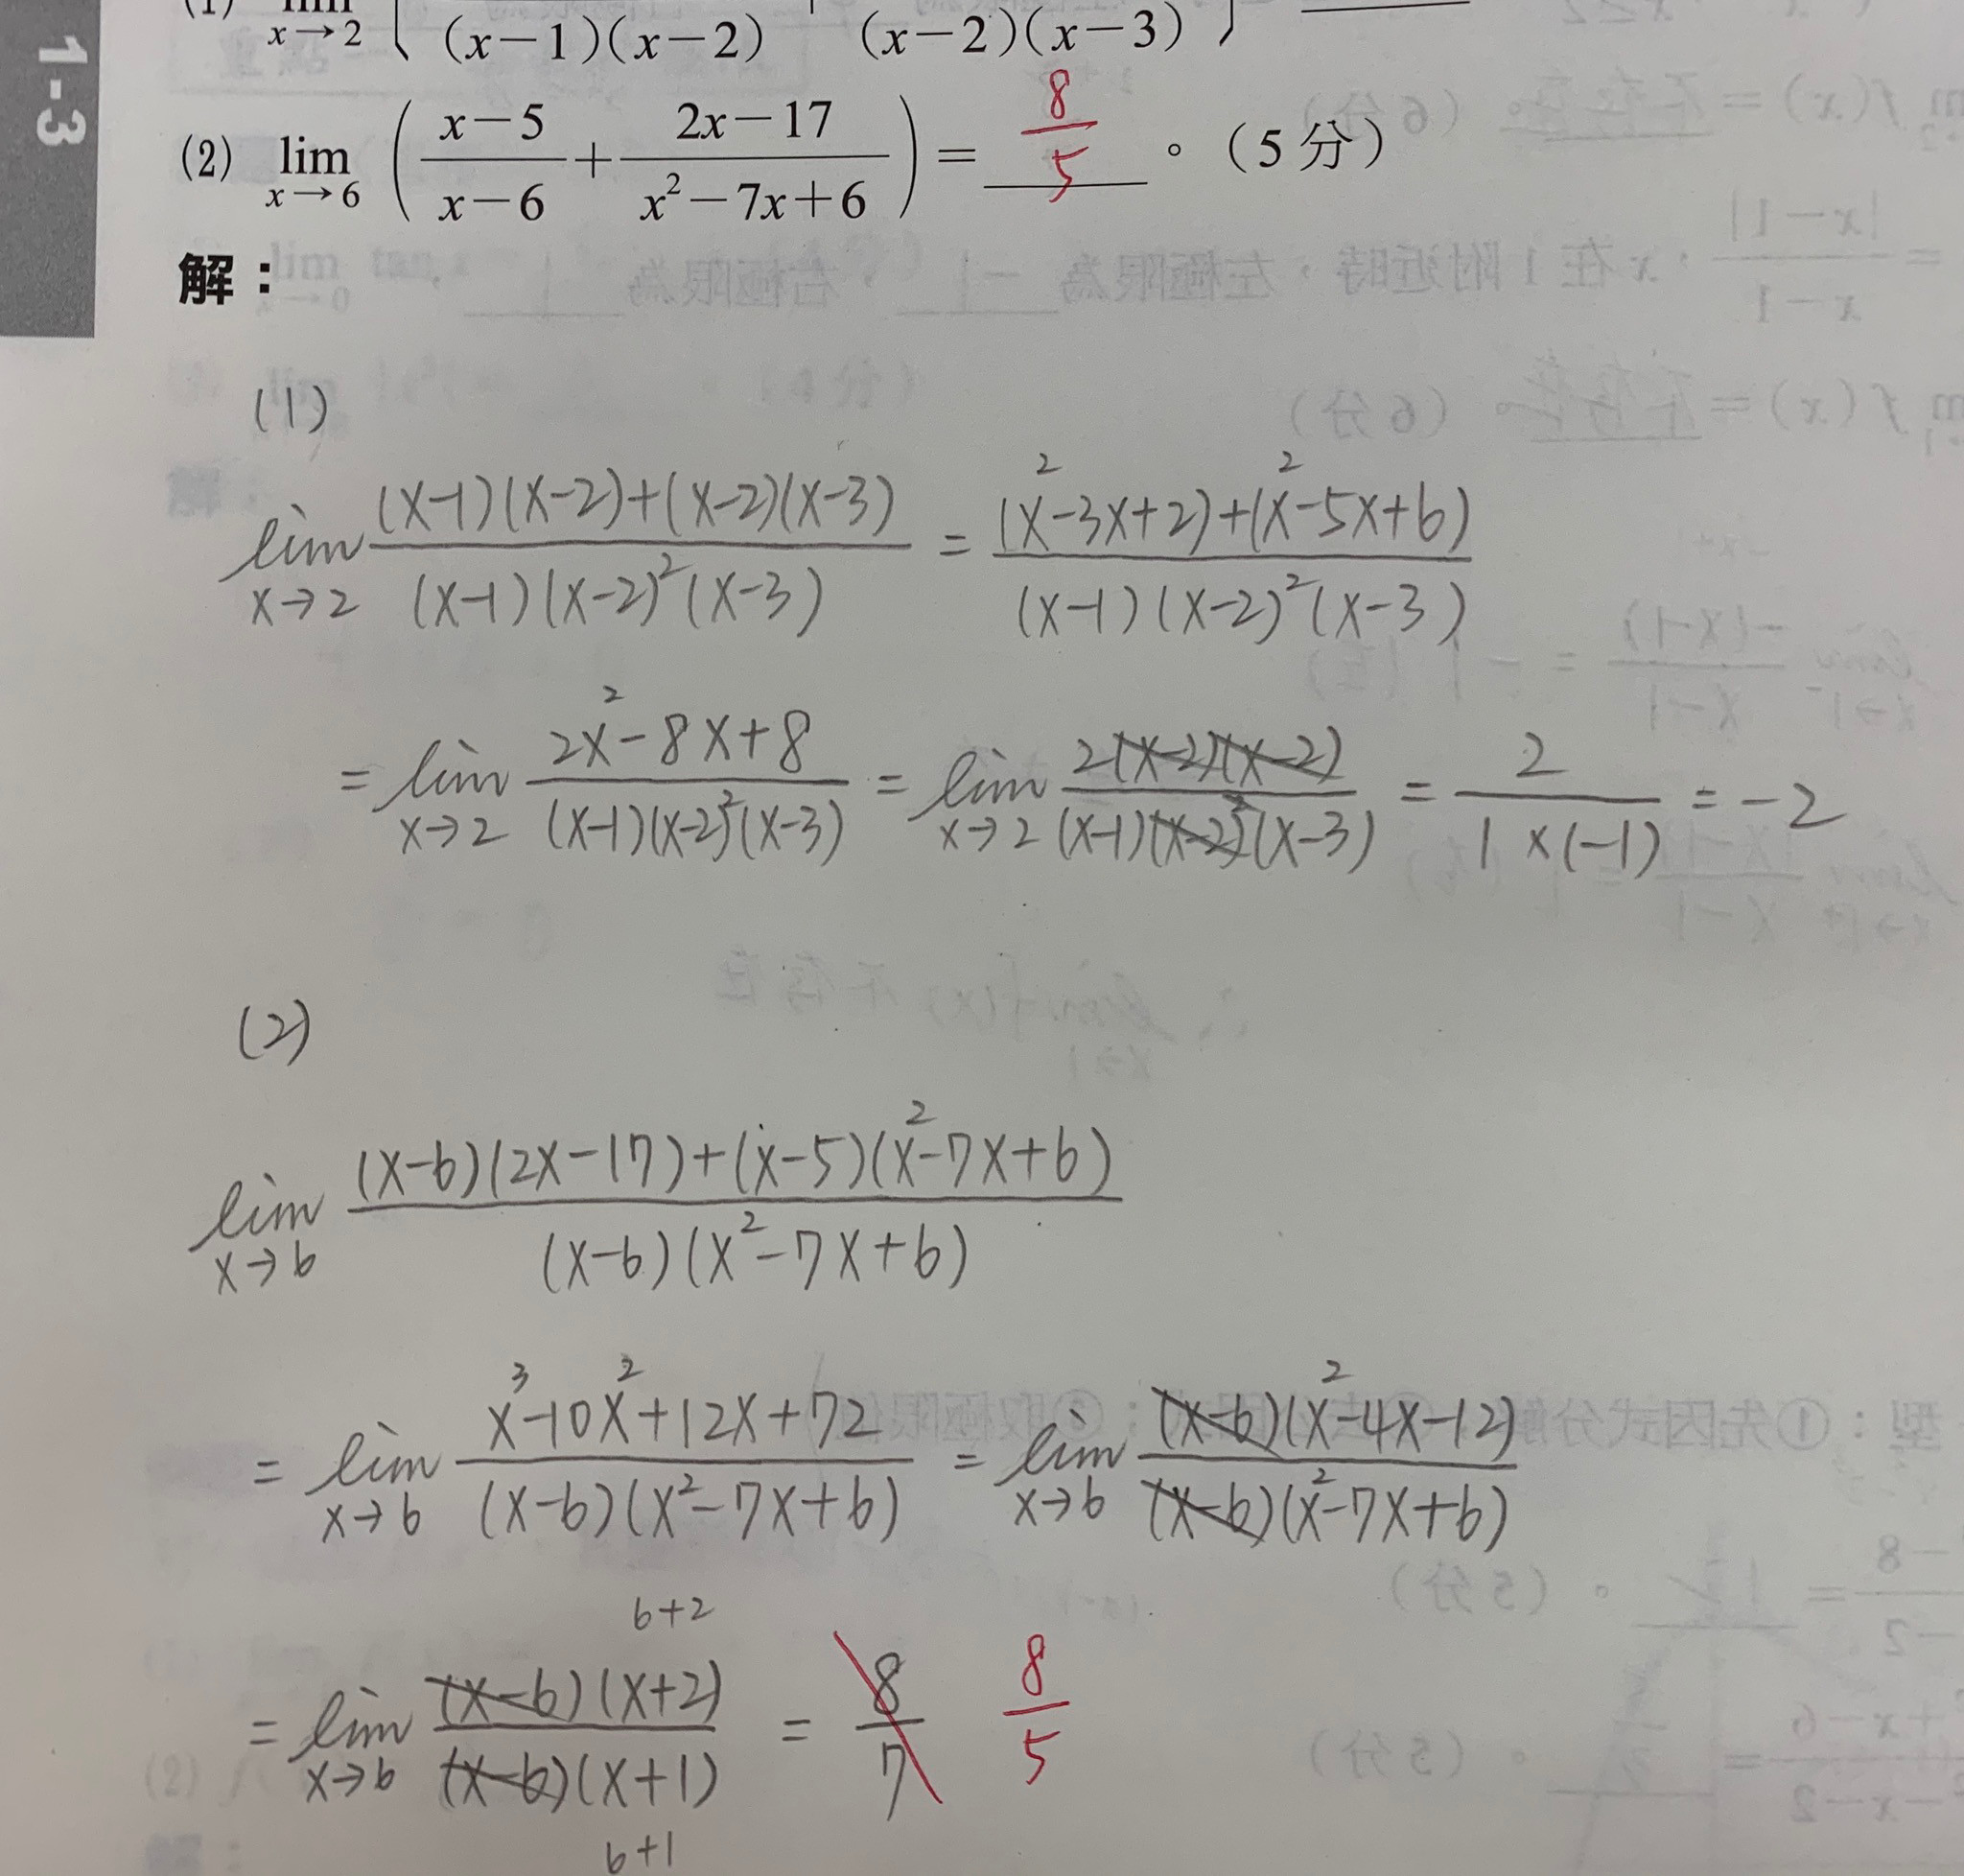 1-3
(1) lim x→2 ( (x-1)(x-2) (x-2)(x-3) )
(2) lim x→6 ( (x-5)/(x-6) + (2x-17)/(x²-7x+6) ) = 8/5 。(5 分)
解：
(1)
lim x→2 ((x-1)(x-2)+(x-2)(x-3))/((x-1)(x-2)²(x-3)) = ((x²-3x+2)+(x²-5x+6))/((x-1)(x-2)²(x-3))
= lim x→2 (2x²-8x+8)/((x-1)(x-2)²(x-3)) = lim x→2 (2(x-2)(x-2))/((x-1)(x-2)²(x-3)) = 2/(1×(-1)) = -2
(2)
lim x→6 ((x-6)(2x-17)+(x-5)(x²-7x+6))/((x-6)(x²-7x+6))
= lim x→6 (x³-10x²+12x+72)/((x-6)(x²-7x+6)) = lim x→6 ((x-6)(x²-4x-12))/((x-6)(x²-7x+6))
6+2
= lim x→6 ((x-6)(x+2))/((x-6)(x+1)) = 8/7 8/5
6+1